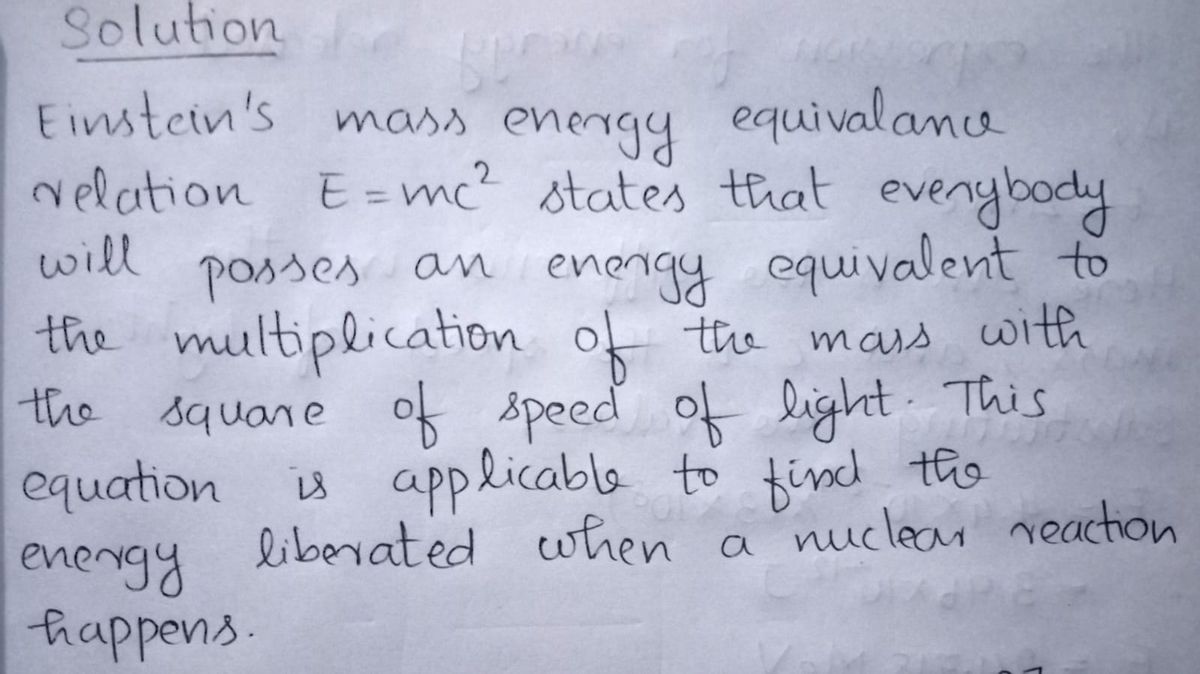 Solution
Einstein's mass energy equivalance
relation E = mc² states that everybody
will posses an energy equivalent to
the multiplication of the mass with
the square of speed of light. This
equation is applicable to find the
energy liberated when a nuclear reaction
happens.